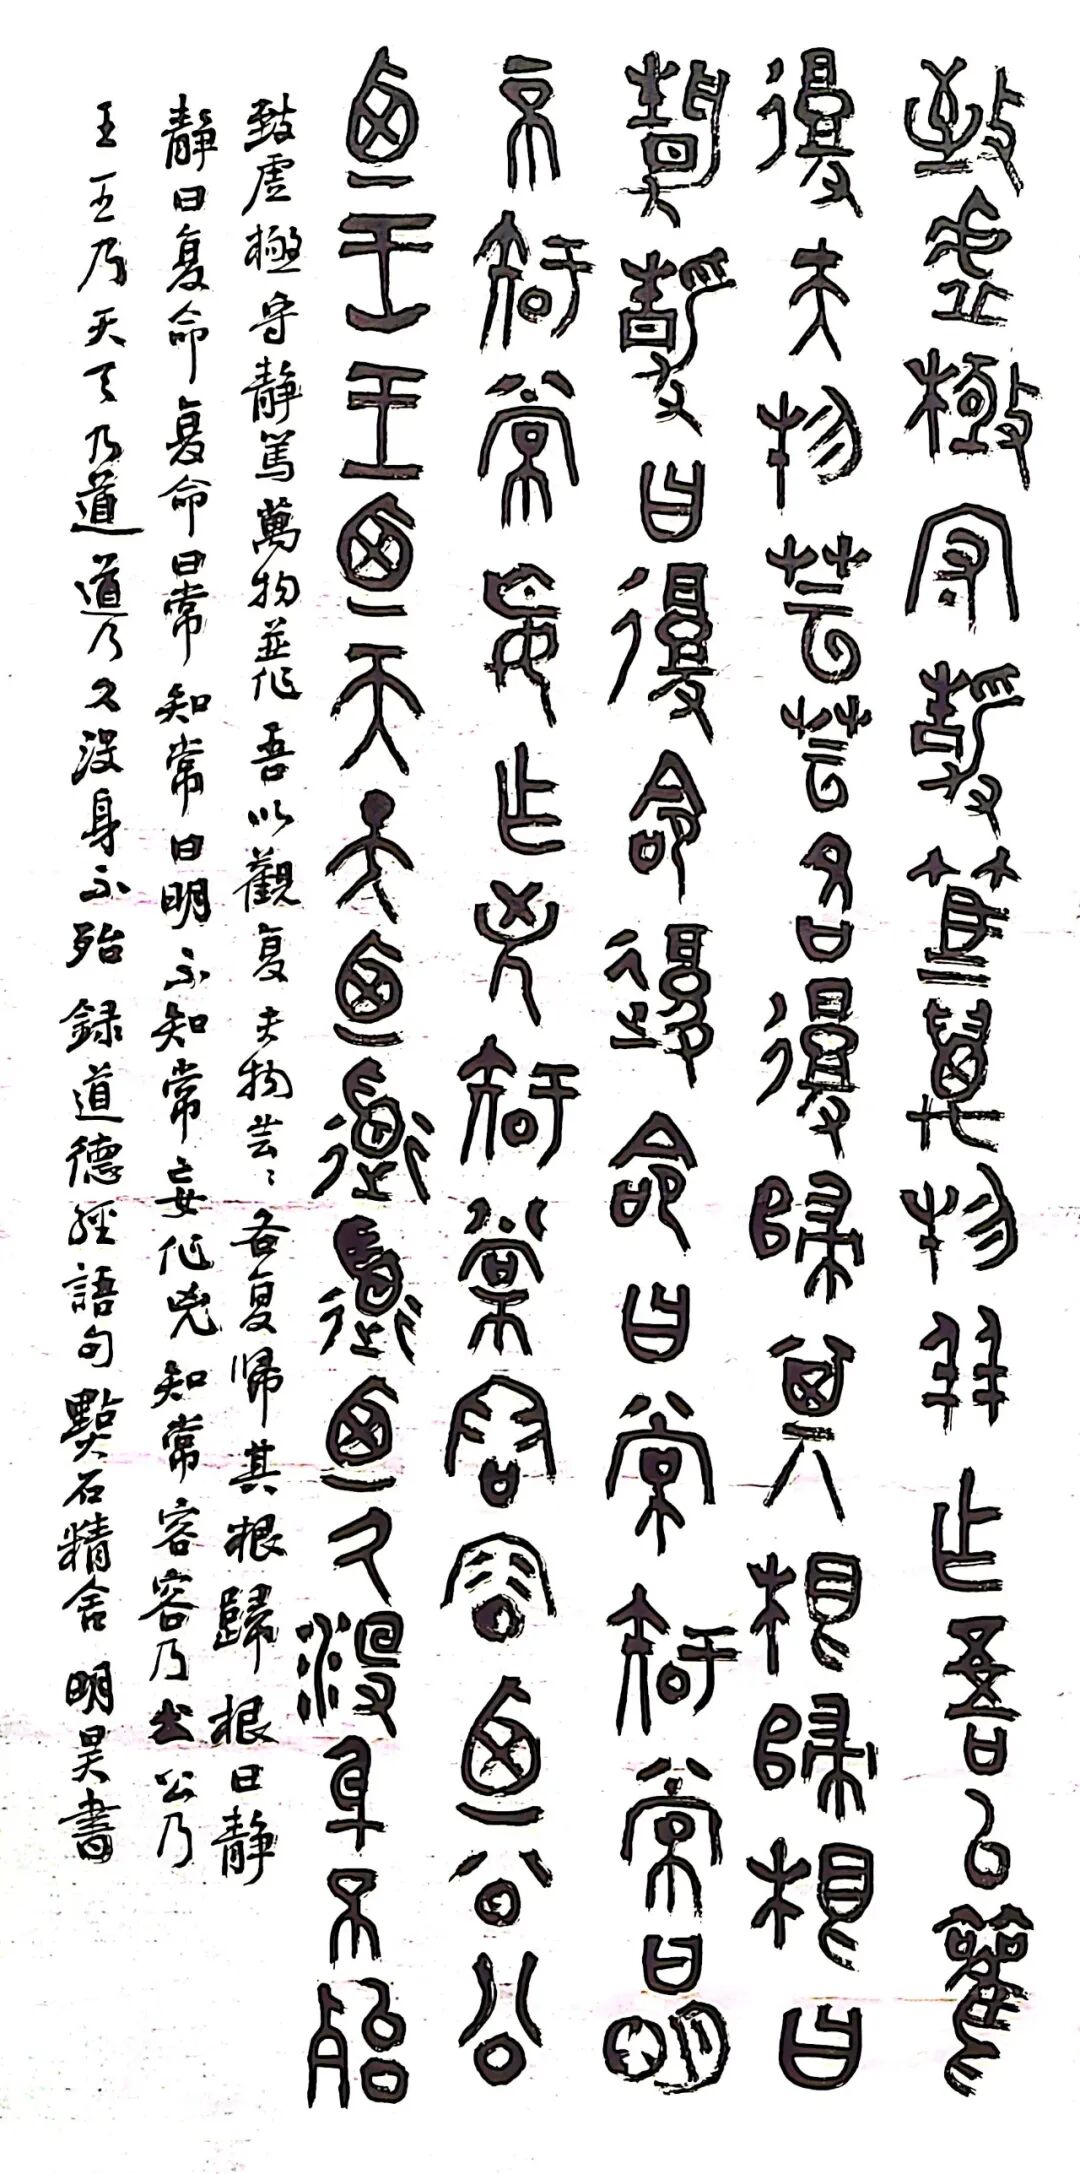 致虛極守靜篤萬物並作吾以觀
復夫物芸芸各復歸其根歸根曰
靜靜曰復命復命曰常知常曰明
不知常妄作兇知常容容乃公公
乃王王乃天天乃道道乃久沒身不殆
致虛極守靜篤萬物並作吾以觀复夫物芸々各复歸其根歸根曰静
静曰复命复命曰常知常曰明不知常妄作兇知常容容乃公公乃
王王乃天天乃道道乃久没身不殆 録道德經語句 點石精舍 明昊書